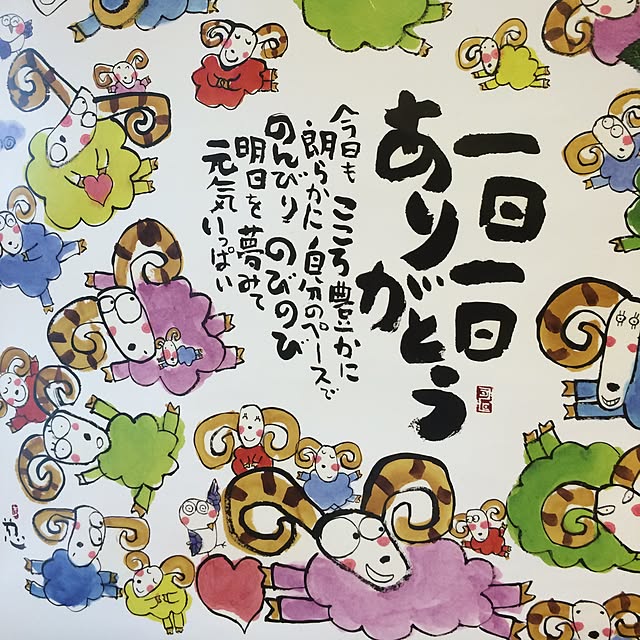 一日一日
ありがとう
今日も こころ豊かに
朗らかに 自分のペースで
のんびり のびのび
明日を 夢みて
元気いっぱい